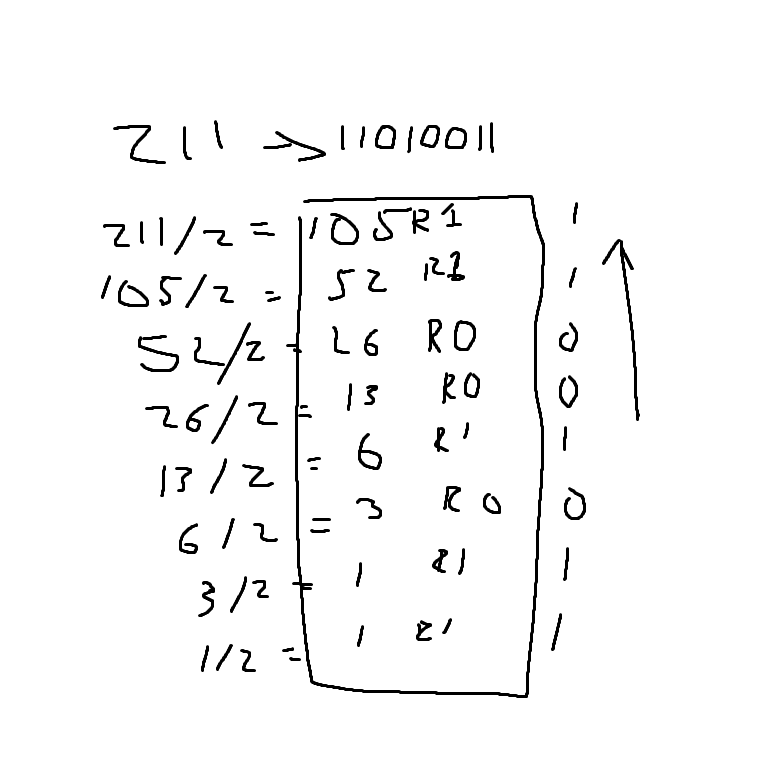 211 → 11010011
211/2 = 105 R1 1
105/2 = 52 R1 1
52/2 - 26 R0 0
26/2 = 13 R0 0
13/2 = 6 R1 1
6/2 = 3 R0 0
3/2 = 1 R1 1
1/2 = 1 R1 1